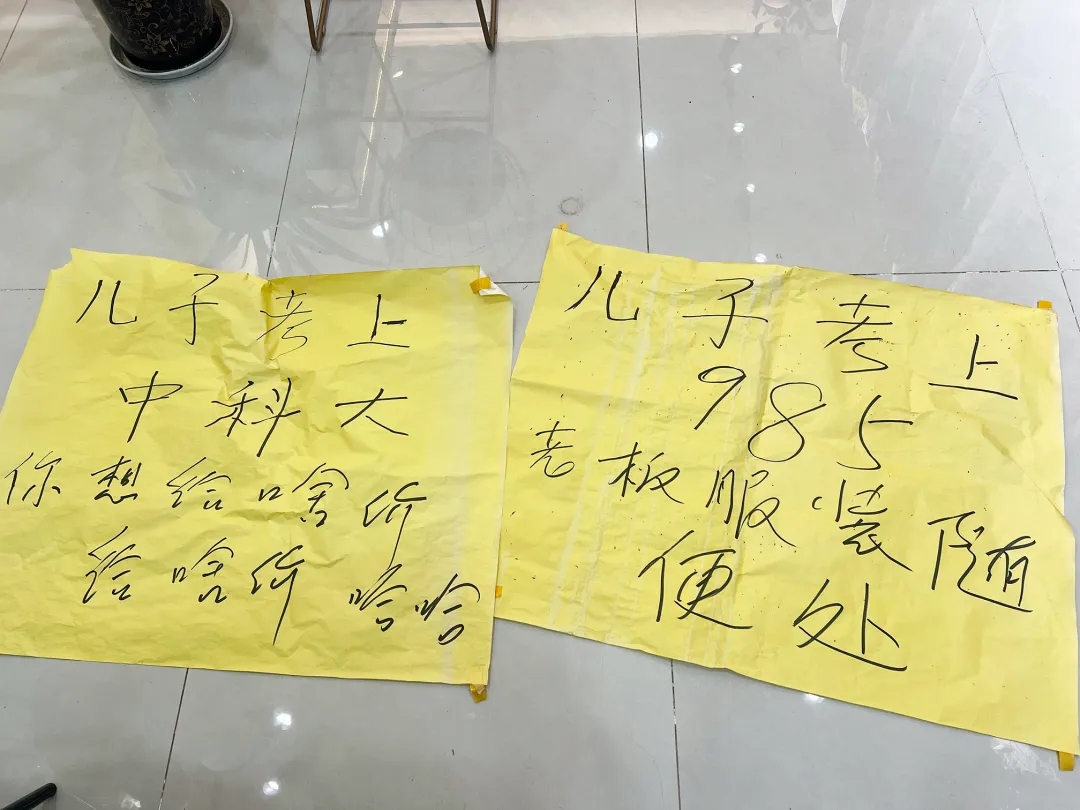 儿子考上
中科大
你想给啥价
给啥价哈哈
儿子考上
985
老板服装随
便处